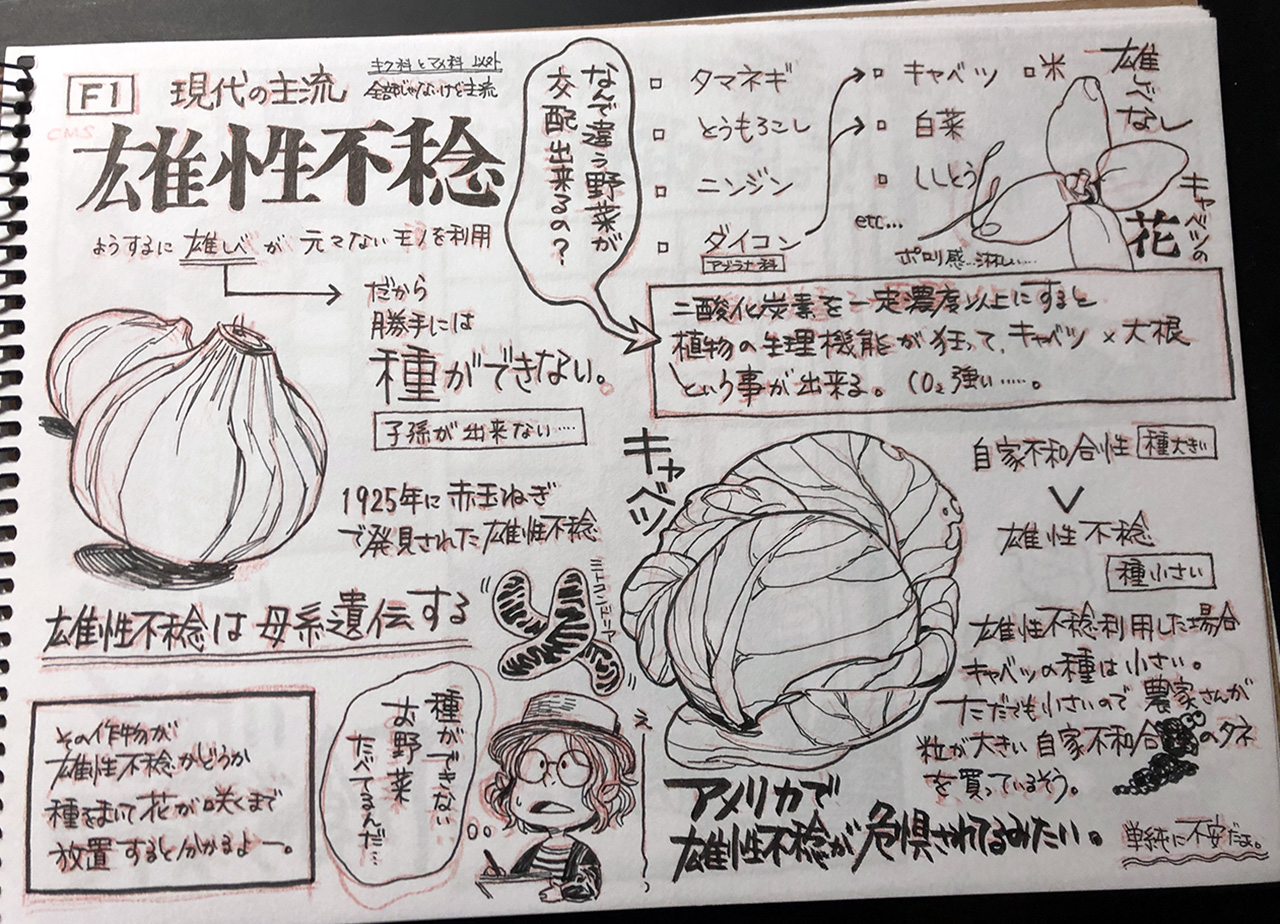 F1
現代の主流
キク科とマメ科 以外
全部じゃないけど主流
CMS
雄性不稔
ようするに 雄しべ が 元々ないモノを利用
だから
勝手には
種ができない。
子孫が出来ない……
1925年に 赤玉ねぎ
で発見された 雄性不稔
雄性不稔は 母系遺伝する
ミトコンドリア
その作物が
雄性不稔かどうか
種をまいて 花が咲くまで
放置すると分かるよー。
種ができない
お野菜
たべてるんだ…
え
なんで違う野菜が
交配出来るの？
タマネギ
とうもろこし
ニンジン
ダイコン
アブラナ科
キャベツ
米
白菜
ししとう
etc...
雄しべなし
キャベツの
花
ポロリ感…淋しい……
二酸化炭素を一定濃度以上にすると
植物の生理機能が狂って、キャベツ×大根
という事が出来る。CO₂強い……。
キャベツ
自家不和合性 種大きい
雄性不稔
種小さい
雄性不稔利用した場合
キャベツの種は小さい。
ただでも小さいので 農家さんが
粒が大きい 自家不和合 のタネ
を買っているそう。
アメリカで
雄性不稔が危惧されてるみたい。
単純に不安だよ。